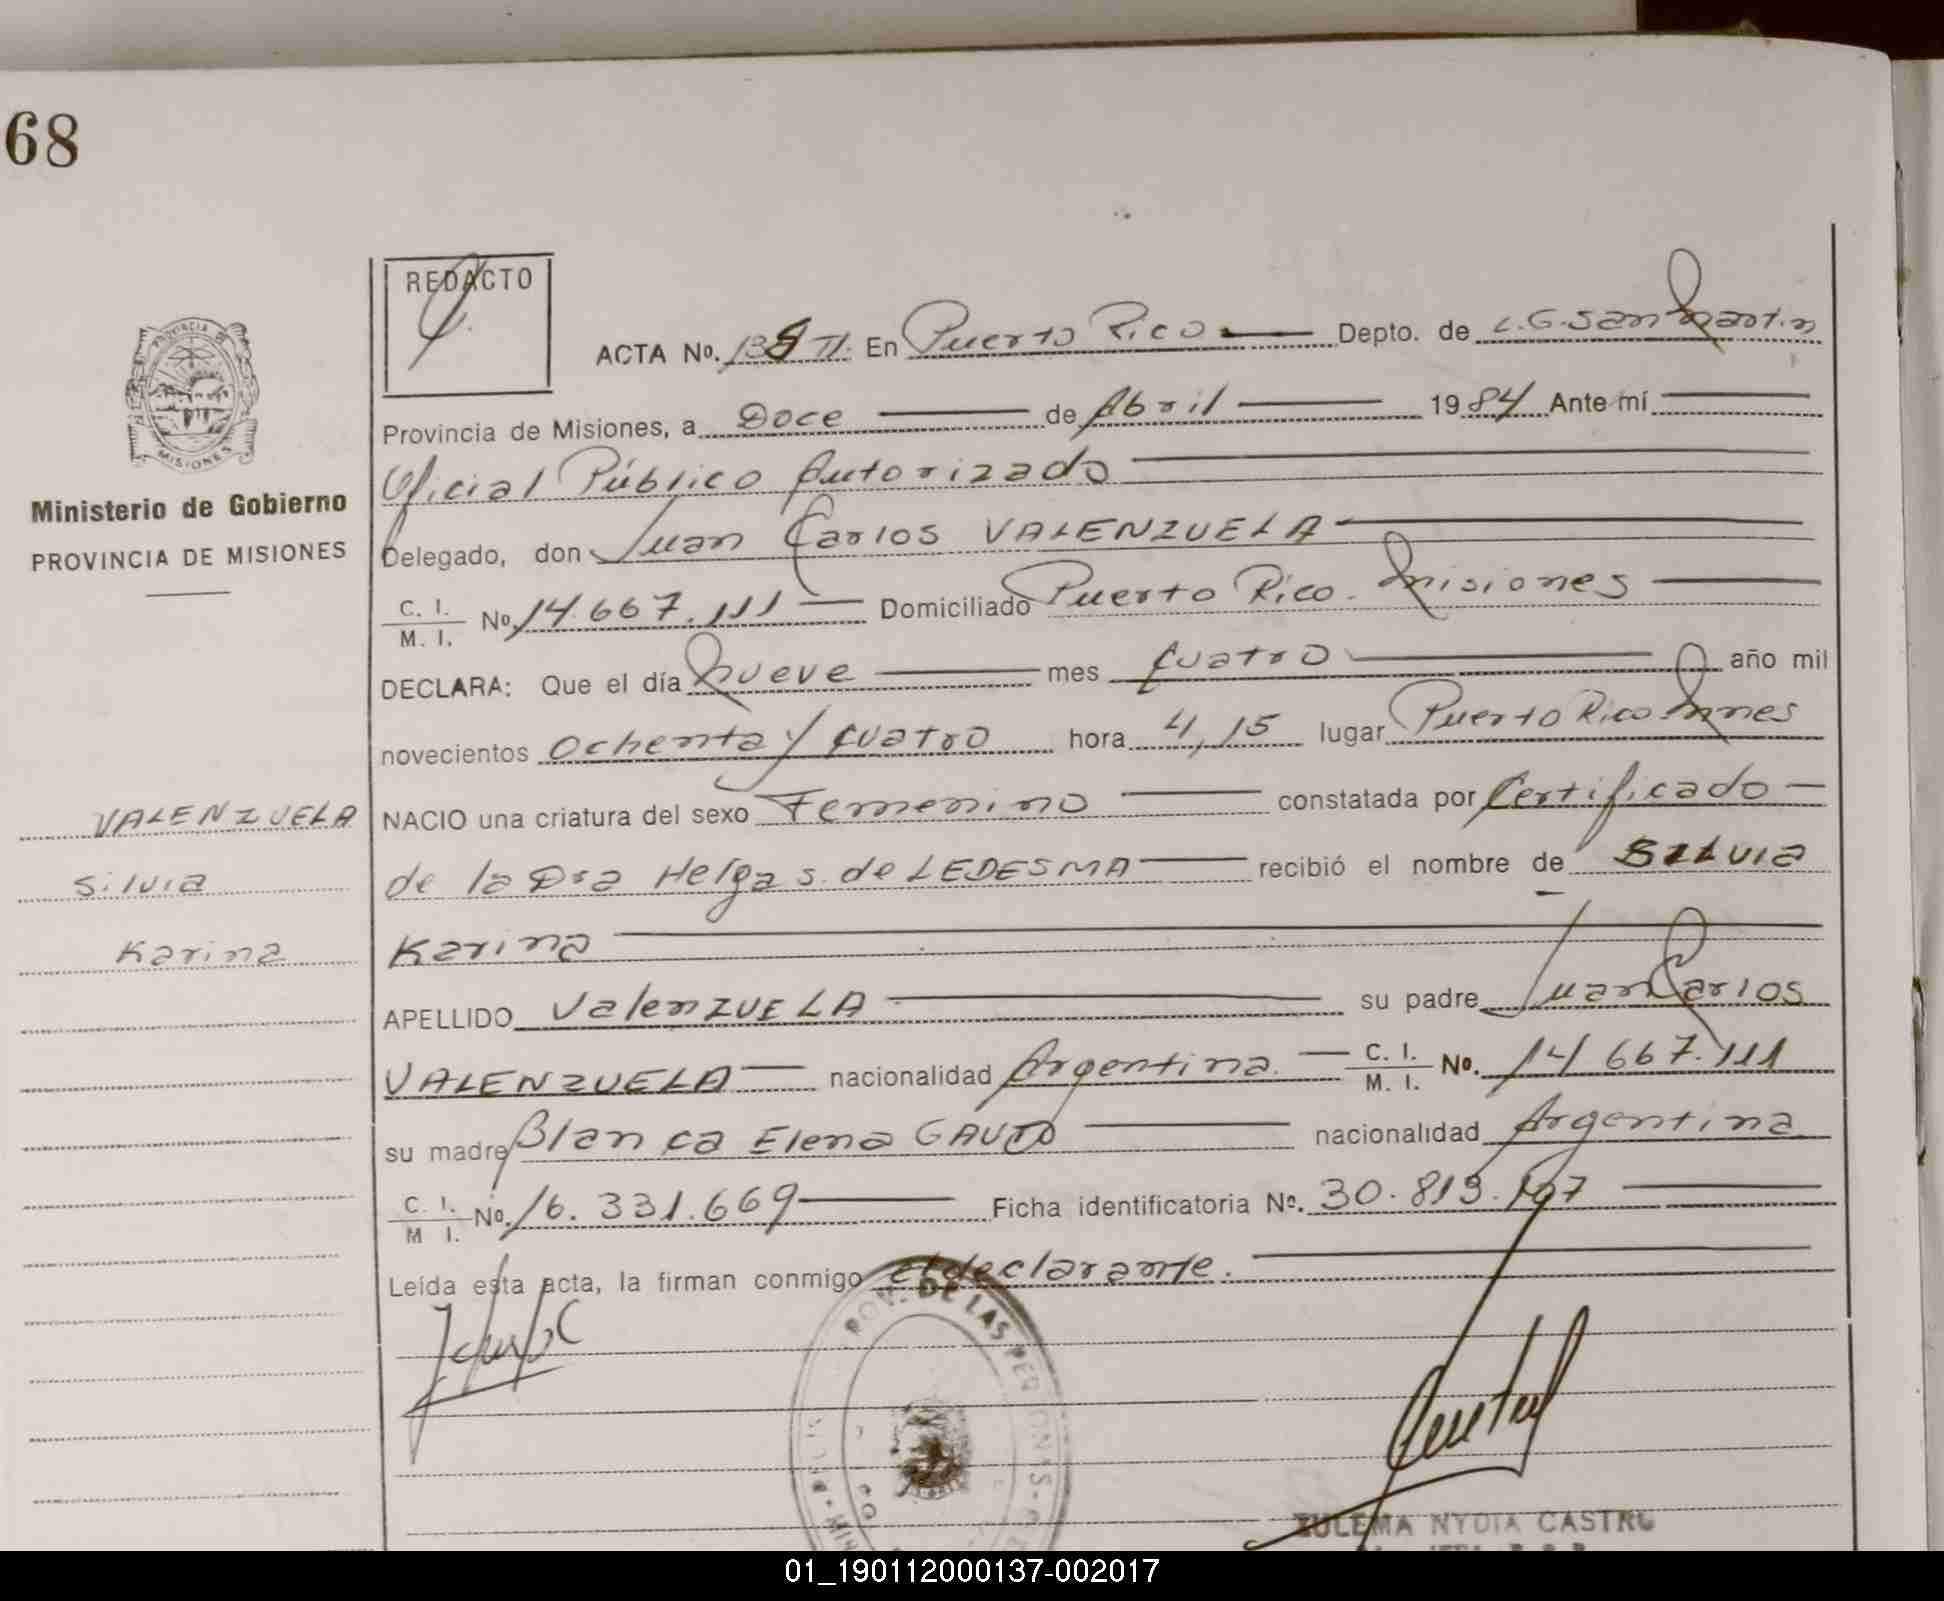 68
REDACTO
ACTA No. 138 TI. En Puerto Rico Depto. de L.G. San Martin
Provincia de Misiones, a Doce de Abril 1984 Ante mí
Oficial Público Autorizado
Delegado, don Juan Carlos VALENZUELA
C. I. / M. I. No. 14.667.111 Domiciliado Puerto Rico. Misiones
DECLARA: Que el día Nueve mes Cuatro año mil
novecientos Ochenta y Cuatro hora 4,15 lugar Puerto Rico Mnes
NACIO una criatura del sexo Femenino constatada por Certificado
de la Dra Helga S. de LEDESMA recibió el nombre de SILVIA
Karina
APELLIDO ValenZUELA su padre Juan Carlos
VALENZUELA nacionalidad Argentina. C. I. / M. I. No. 14 667.111
su madre Blanca Elena GAUTO nacionalidad Argentina
C. I. / M I. No. 16.331.669 Ficha identificatoria Nº. 30.813.197
Leída esta acta, la firman conmigo el declarante.
PROVINCIA DE
MISIONES
Ministerio de Gobierno
PROVINCIA DE MISIONES
VALENZUELA
Silvia
Karina
PROV. DE LAS PERSONAS
ZULEMA NYDIA CASTRO
01_190112000137-002017